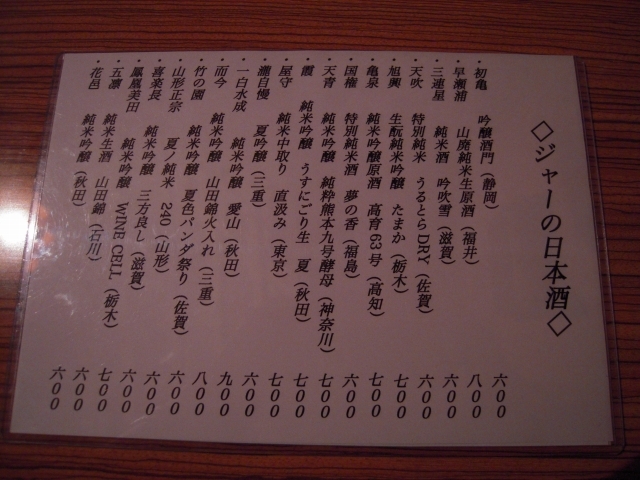 ◇ジャーの日本酒◇
・初亀 吟醸酒門（静岡） 六00
・早瀬浦 山廃純米生原酒（福井） 八00
・三連星 純米酒 吟吹雪（滋賀） 六00
・天吹 特別純米 うるとらDRY（佐賀） 六00
・旭興 生酛純米吟醸 たまか（栃木） 七00
・亀泉 純米吟醸原酒 高育63号（高知） 七00
・国権 特別純米酒 夢の香（福島） 六00
・天青 純米吟醸 純粋熊本九号酵母（神奈川） 七00
・霞 純米吟醸 うすにごり生 夏（秋田） 七00
・屋守 純米中取り 直汲み（東京） 七00
・瀧自慢 夏吟醸（三重） 六00
・一白水成 純米吟醸 愛山（秋田） 九00
・而今 純米吟醸 山田錦火入れ（三重） 八00
・竹の園 純米吟醸 夏色パンダ祭り（佐賀） 六00
・山形正宗 夏ノ純米 240（山形） 六00
・喜楽長 純米吟醸 三方良し（滋賀） 六00
・鳳凰美田 純米吟醸 WINE CELL（栃木） 七00
・五凛 純米生酒 山田錦（石川） 六00
・花邑 純米吟醸（秋田） 六00